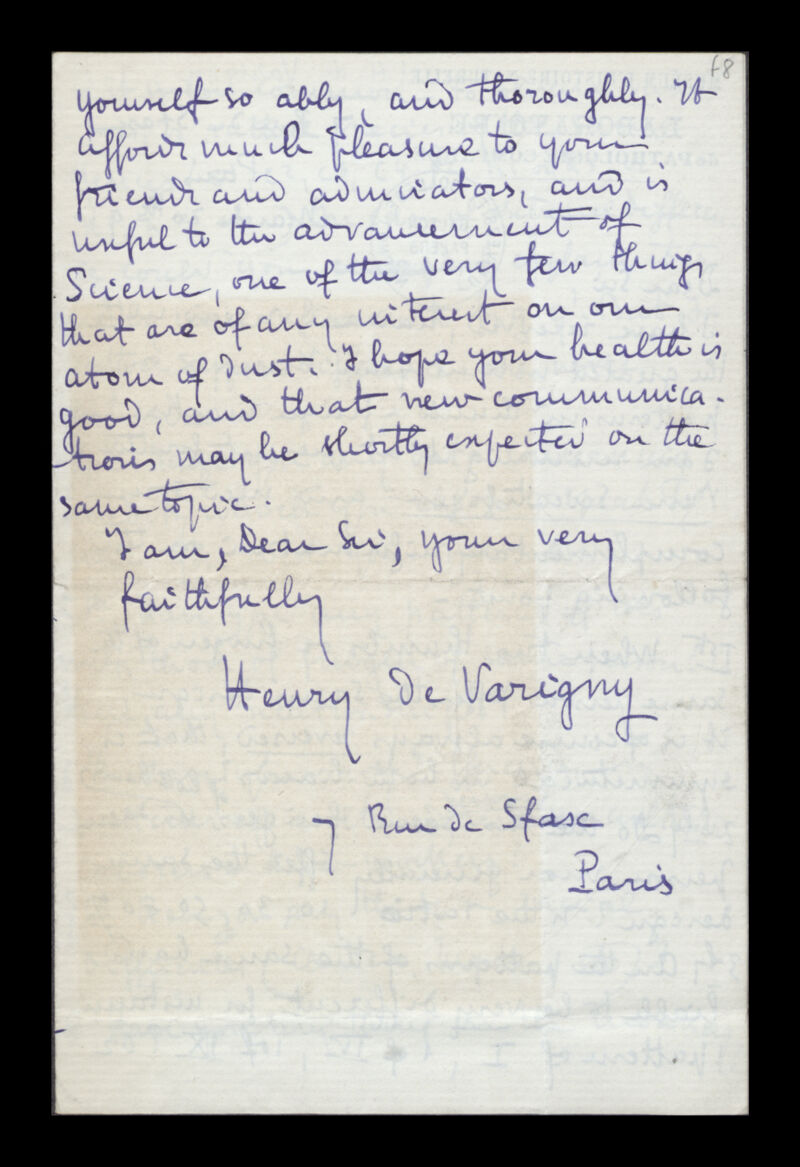 f8
yourself so ably, and thoroughly. It
affords much pleasure to your
friends and admirators, and is
useful to the advancement of
Science, one of the very few things
that are of any interest on our
atom of dust. I hope your health is
good, and that new communica-
tions may be shortly expected on the
same topic.
I am, Dear Sir, yours very
faithfully
Henry de Varigny
7 Rue de Sfax
Paris